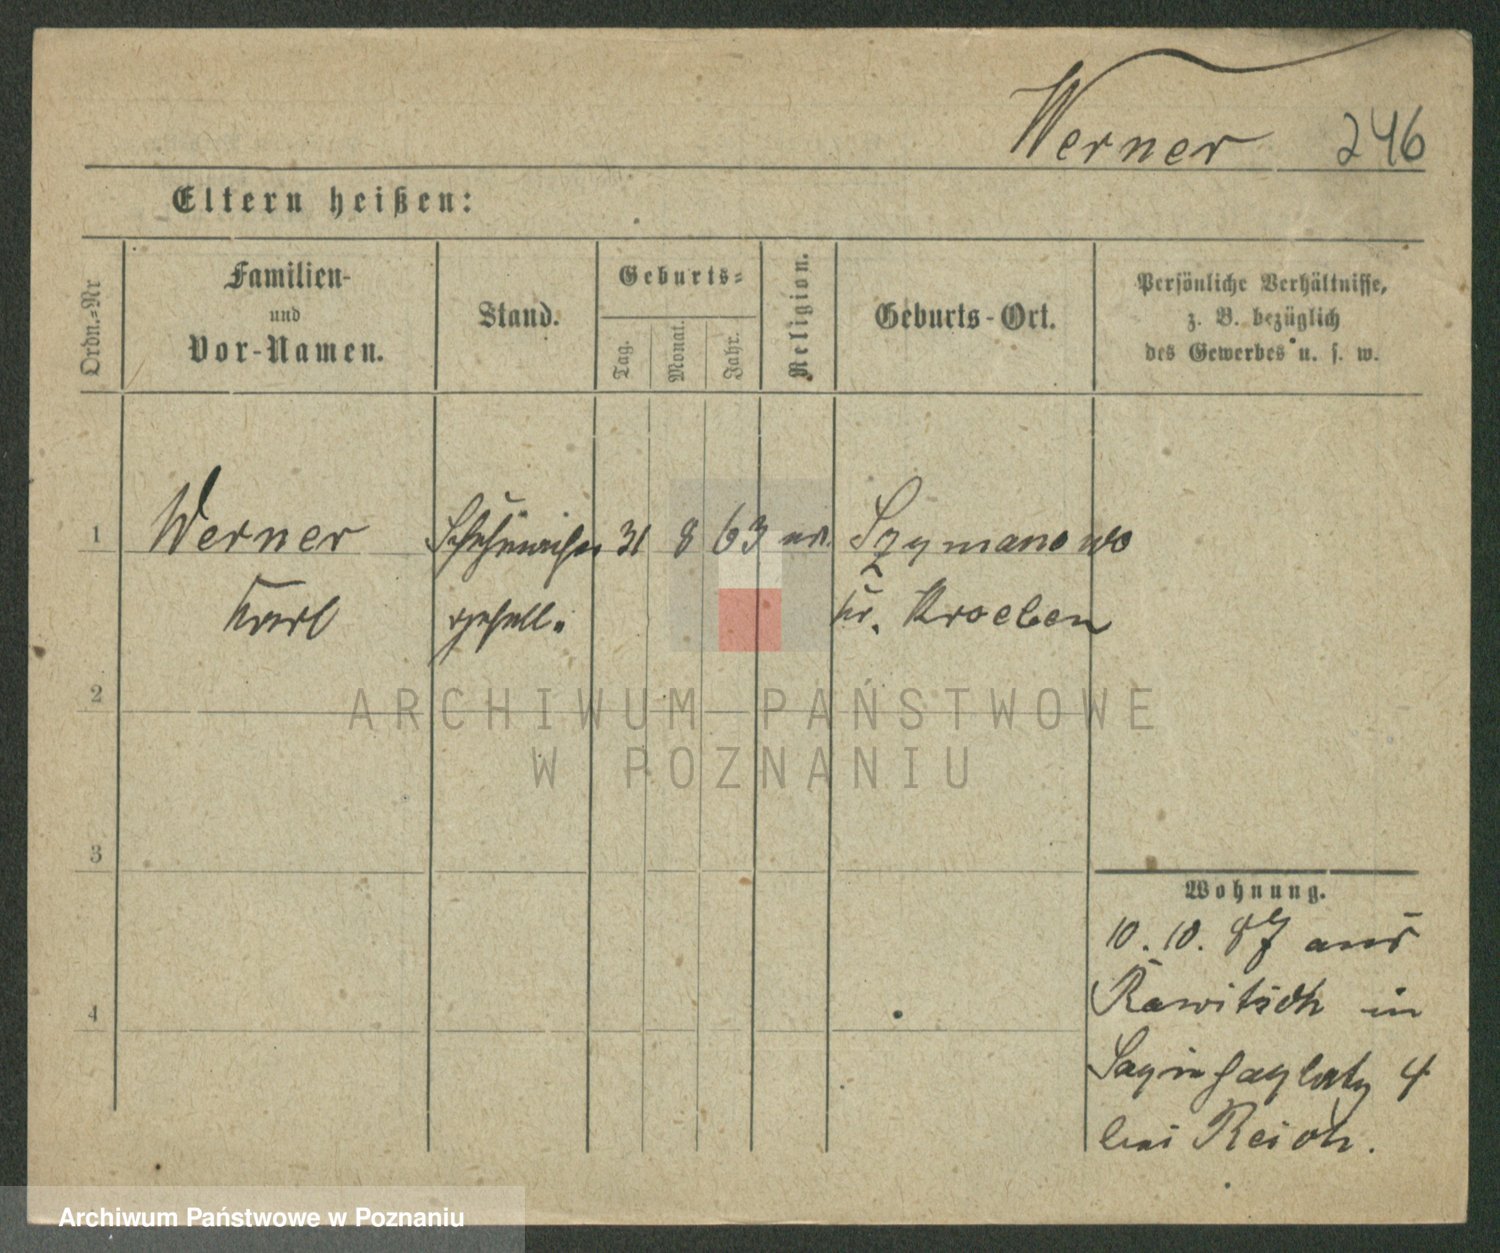 Werner 246
Eltern heißen:
Ordn.-Nr
Familien-
und
Vor-Namen.
Stand.
Geburts-
Tag.
Monat.
Jahr.
Religion.
Geburts-Ort.
Persönliche Verhältnisse,
z. B. bezüglich
des Gewerbes u. s. w.
1 Werner 31 8 63 Szymanowo
Karl gesell. Kr. Kroeben
2
3
4
Wohnung.
10. 10. 87 aus
Rawitsch in
Sapiehaplatz 4
bei Reich.
ARCHIWUM PAŃSTWOWE
W POZNANIU
Archiwum Państwowe w Poznaniu